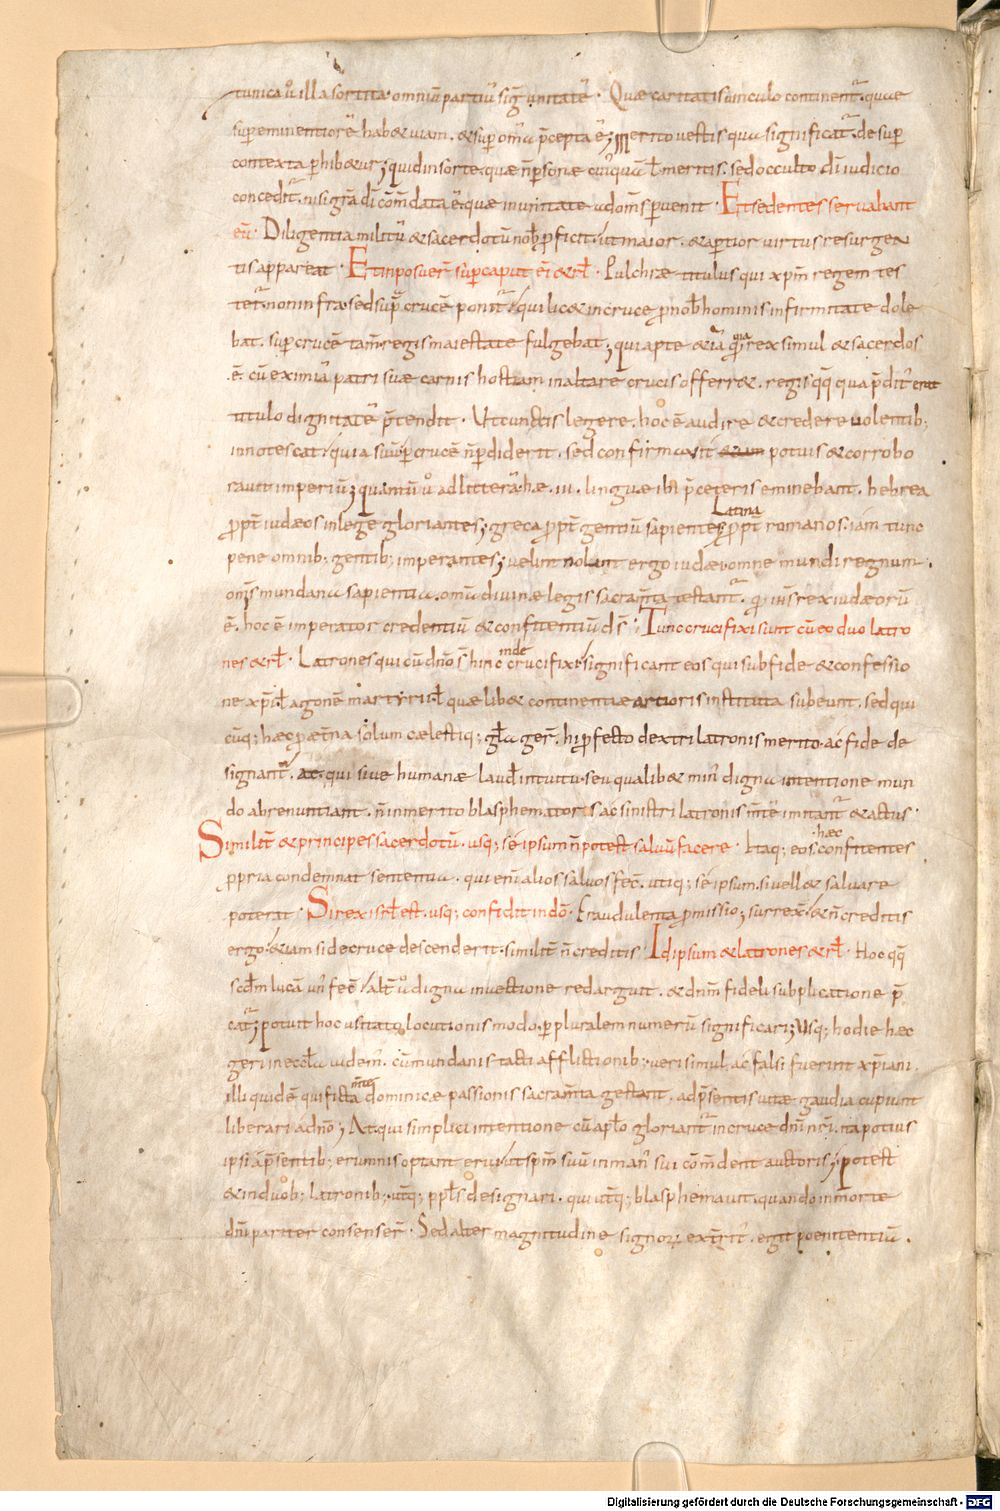 tunica u illa sortita omniū partiū sig unitatē. Quae caritatis uinculo continent. quae
supeminentiorē habet uiam. & sup omīa pcepta ē; merito uestis qua significat. de sup
contexta phibetur; quid in sorte. quae n psonae cuiquā t meritis. sed occulto dī iudicio
concedit. nisi grā dī Et sedentes seruabant
eū. Diligentia militū & sacerdotū nob pficit. ut maior. & aptior uirtus resurgen
tis appareat. Et inposuer sup caput ei & rł. Pulchrae titulus qui xpm regem tes
tet. non infra. sed supra crucē ponit. qui licet in cruce p nob hominis infirmitate dole
bat. sup crucē tam regis maiestate fulgebat; qui apte quia rex simul & sacerdos
ē. cū eximiā patri suae carnis hostiam in altare crucis offerret. regis qq qua pdit erat
titulo dignitatē ptendit. Ut cunctis legere. hoc ē audire & credere uolentib;
innotescat quia suū p crucē n pdiderit. sed confirmauit potius & corrobo
rauit imperiū; quantū u ad litterā. hae .iii. linguae ibi p ceteris eminebant. hebrea
ppt iudaeos in lege gloriantes; greca ppt gentiū sapientes; Latina ppt romanos. iam tunc
pene omnib; gentib; imperantes; uelint nolint ergo iudaei. omne mundi regnum.
omīs mundana sapientia. omīa diuinae legis sacramta testant. q ihs rex iudaeorū
ē. hoc ē imperator credentiū & confitentiū ds. Tunc crucifixi sunt cū eo duo latro
nes & rł. Latrones qui cū dno s hinc inde crucifixi significant eos qui sub fide & confessio
ne xpi t agonē martyrii. t quaelibet continentiae artioris instituta subeunt. sed qui
cūq; haec p aetna solum caelestiq; gła ger. hi pfecto dextri latronis merito. ac fide de
signant. ac qui siue humanae laudis intuitu. seu qualibet min digna intentione mun
do abrenuntiant. n inmerito blasphematoris ac sinistri latronis mtē imitant & actus.
Similit & principes sacerdotū. usq; se ipsum n potest saluū facere. Itaq; eos haec confitentes
ppria condemnat sententia. qui eni alios saluos fec. utiq; se ipsum. si uellet saluare
poterat. Si rex isrł est. usq; confidit in dō. Fraudulenta pmissio; surrex. & n creditis
ergo. etiam si de cruce descenderit. similit n creditis. Id ipsum & latrones & rł. Hoc qq
scdm lucā un fec. alt u digna inuectione redarguit. & dnm fideli subplicatione p
cat; potuit hoc usitato locutionis modo. p pluralem numerū significari; Usq; hodie haec
geri in eccła uidem. cū mundanis tacti afflictionib; ueri simul ac falsi fuerint xpiani.
illi quidē qui ficta mte dominicae passionis sacramta gestant. ad psentis uitae gaudia cupiunt
liberari a dno; At qui simplici intentione cū apło gloriant in cruce dni nri. ita potius
ipsi a psentib; erumnis optant erui ut spm suū in man sui comdent auctoris; potest
& in duob; latronib; utq; ppls designari. qui utq; blasphemauit. quando in morte
dni pariter consenser. Sed alter magnitudine signor extrit. egit poenitentiā.